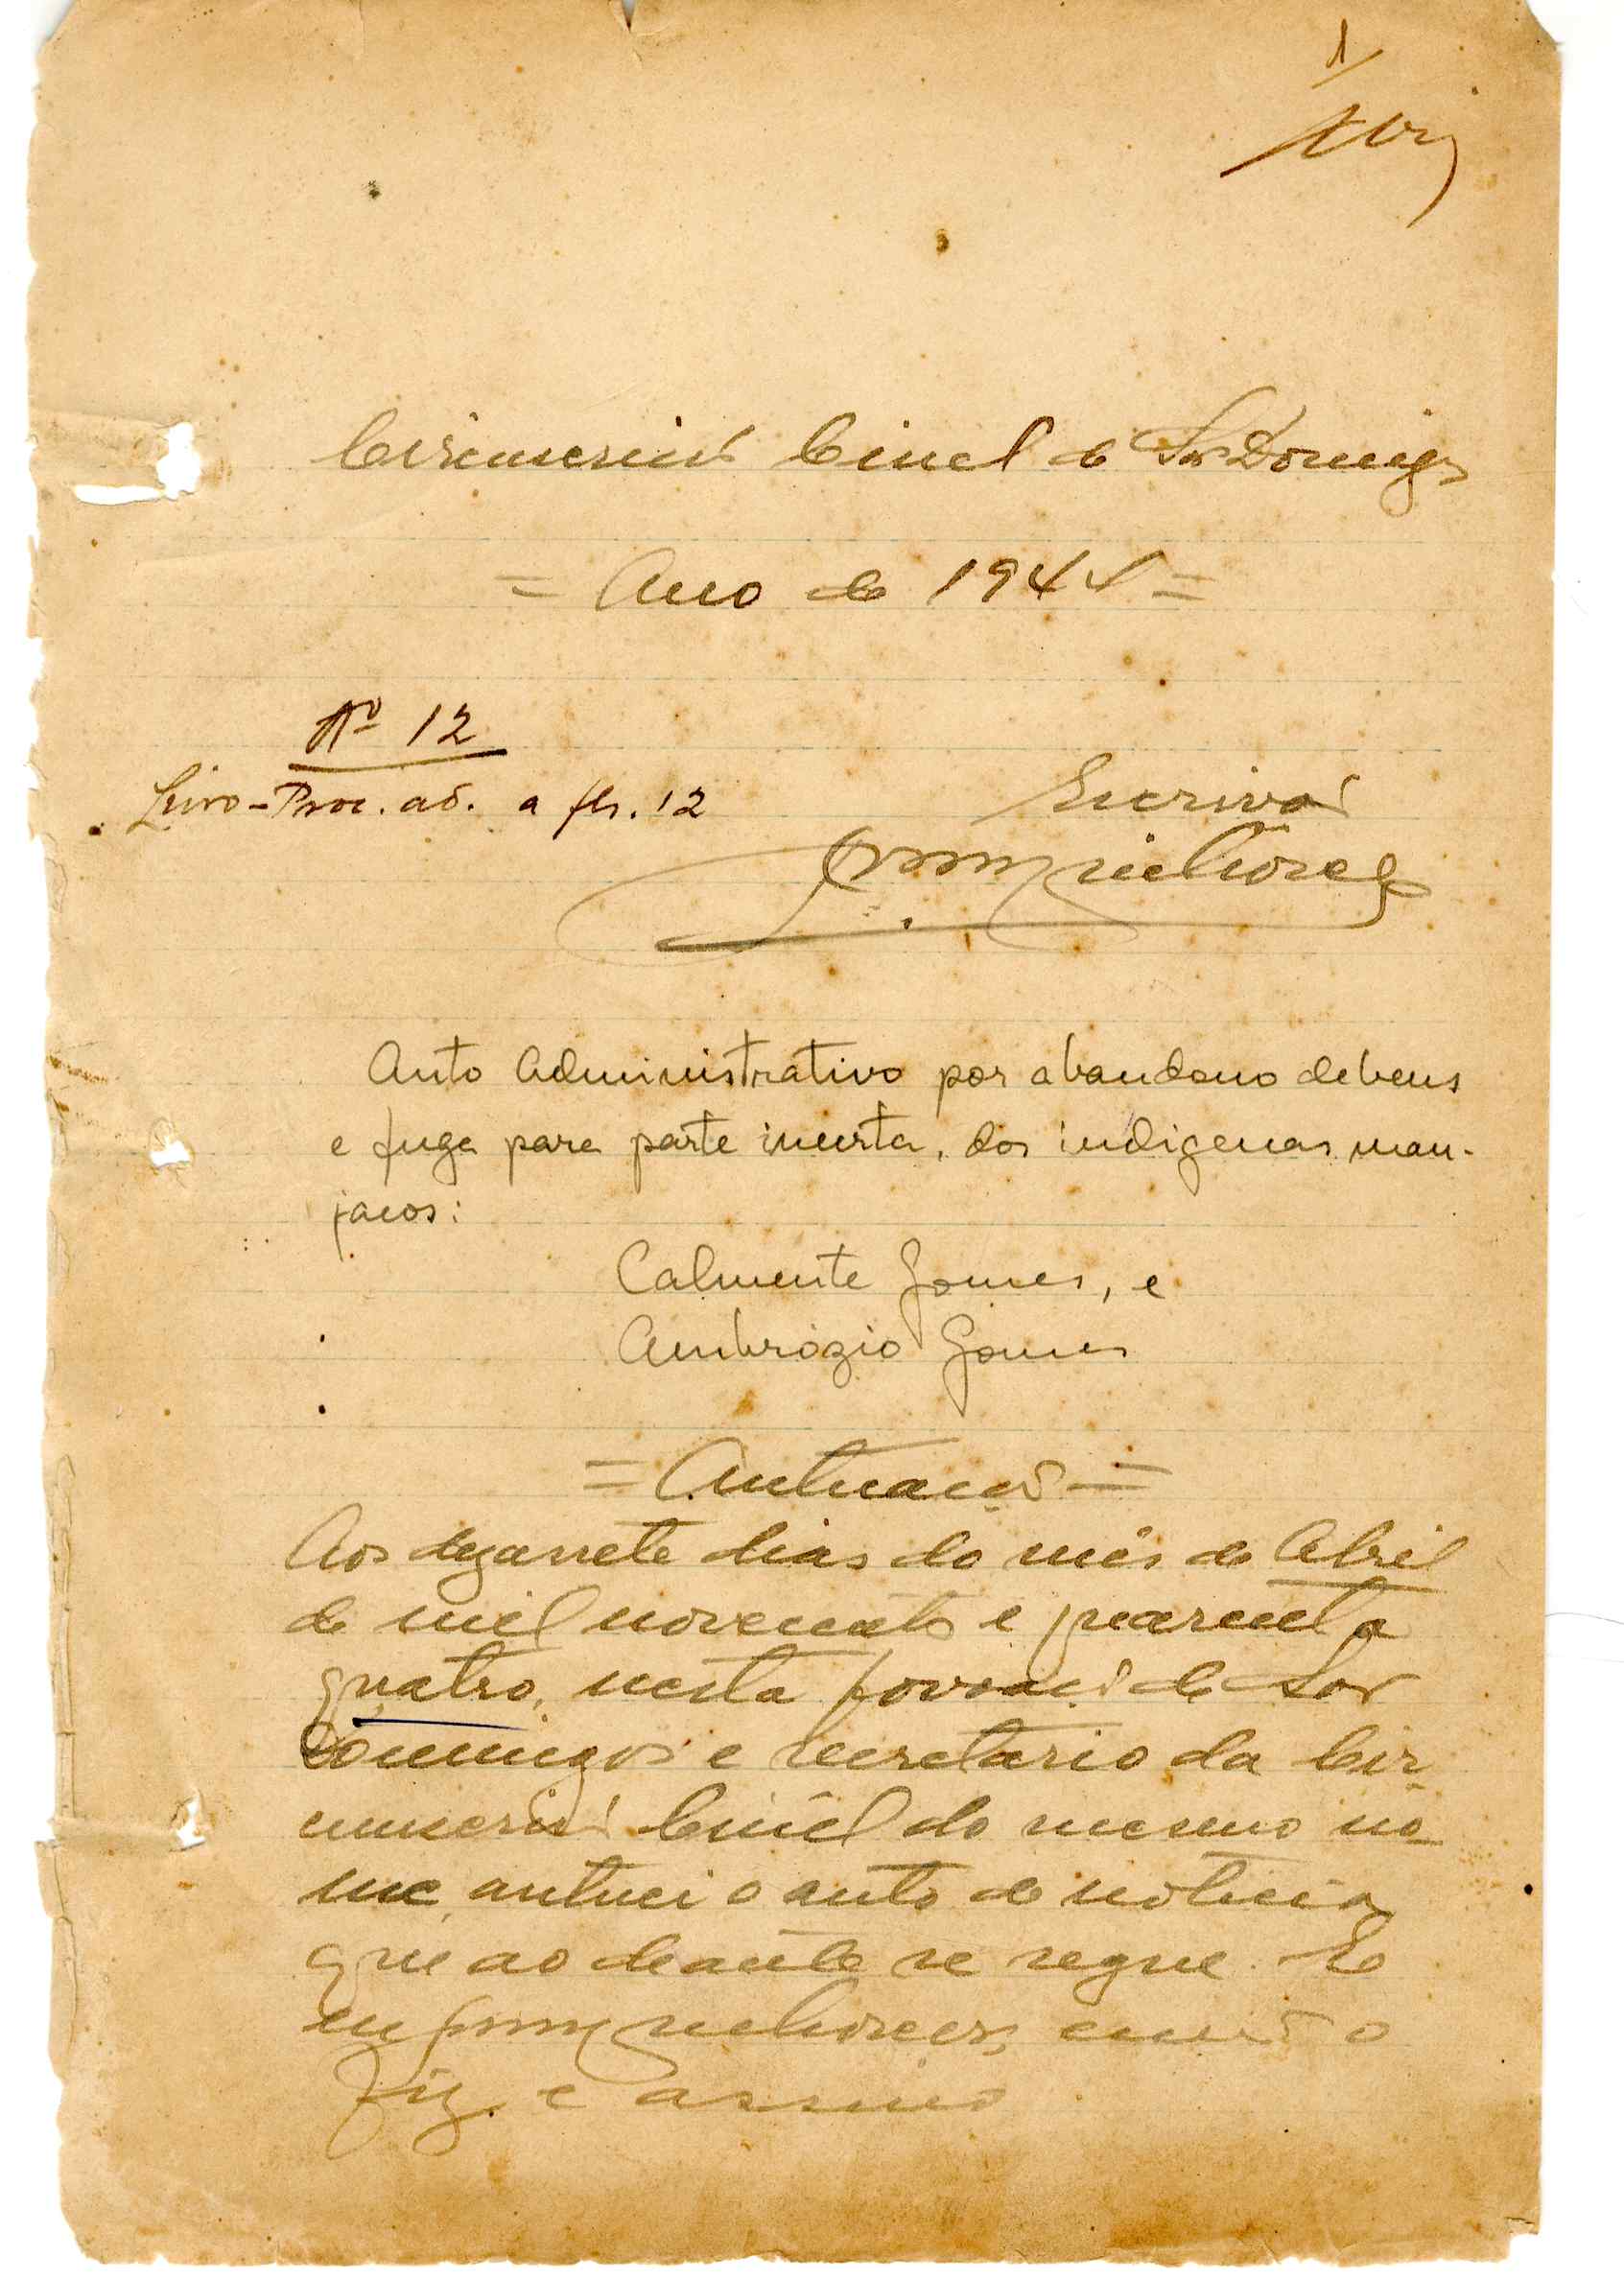 1
Circunscrição Civil de São Domingos
= Ano de 1944 =
Nº 12
Livro-Proc. ad. a fls. 12
Escrivão
Auto Administrativo por abandono de bens
e fuga para parte incerta, dos indigenas man-
jacos:
Calmente Gomes, e
Ambrózio Gomes
= Autuação =
Aos dezassete dias do mês de Abril
de mil novecentos e quarenta e
quatro, nesta povoação de São
Domingos e secretario da Cir-
cunscrição Civil do mesmo no-
me, autuei o auto de noticia
que ao deante se segue. E
eu escrivão o
fiz e assino